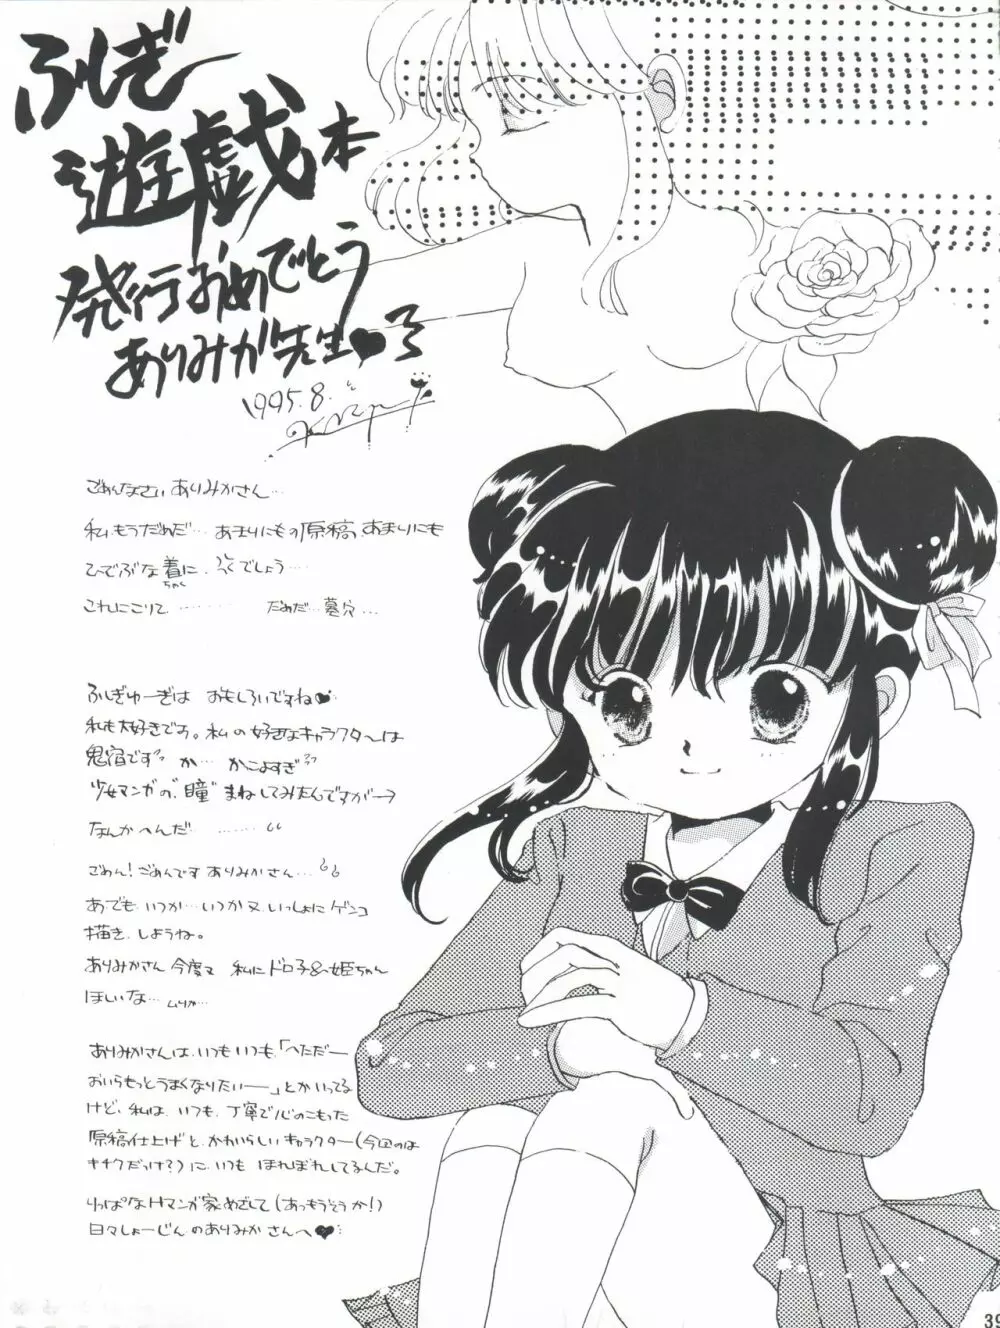 ふしぎ
遊戯本
発行おめでとう
ありみか先生♥
1995.8.
ごめんなさい ありみかさん…
私もうだめだ… あまりにもの原稿、あまりにも
ひでぶな着に、 でしょう…
ちゃく
これにこりて ……… だめだ…墓穴…
ふしぎゅーぎは おもしろいですね♥
私も大好きです。私の好きなキャラクターは
鬼宿です か… かこよすぎ
少女マンガの"瞳"まねしてみたんですが→
なんかへんだ ………
ごめん!ごめんです ありみかさん…
あでも いつか… いつか又 いっしょに ゲンコ
描き しようね。
ありみかさん 今度又 私に ドロ子&姫ちゃん
ほしいな… ムリか…
ありみかさんは、いつもいつも「へただー
おいらもっとうまくなりたいー」とかいってる
けど、私は、いつも、丁寧で心のこもった
原稿仕上げと、かわいらしいキャラクター(今回のは
キチクだっけ?)に、いつも ほれぼれしてるんだ。
りっぱなHマンガ家めざして(あっもうそうか!)
日々しょーじんのありみかさんへ♥
39